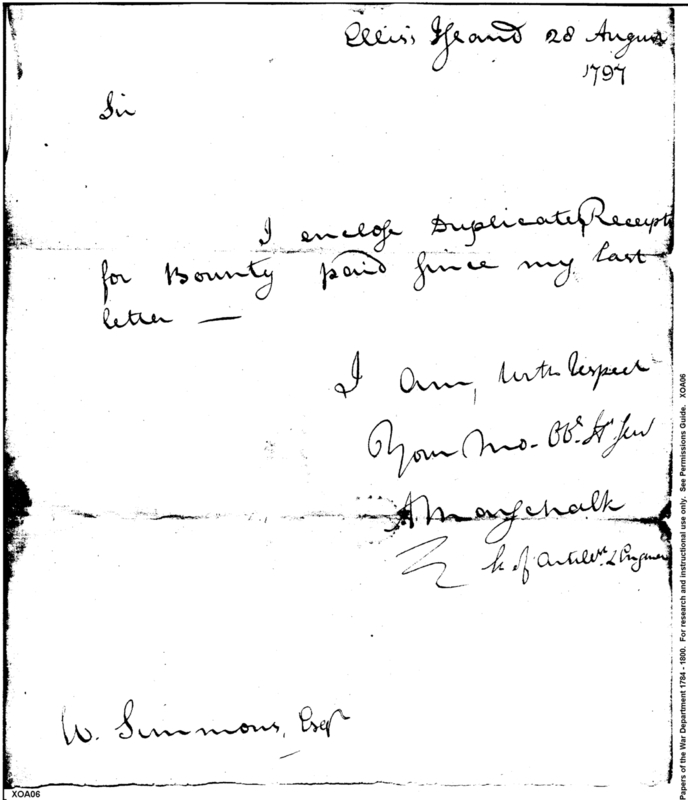 Ellis's Island 28 Augus
1797
Sir
I enclose Duplicate Receipts
for Bounty paid since my last
letter —
I am, with Respect
Your Mo. Obt. Ht. Serv
A. Marschalk
of Artills. & Engineer
W. Simmons, Esqr
XOA06
Papers of the War Department 1784 - 1800. For research and instructional use only. See Permissions Guide. XOA06